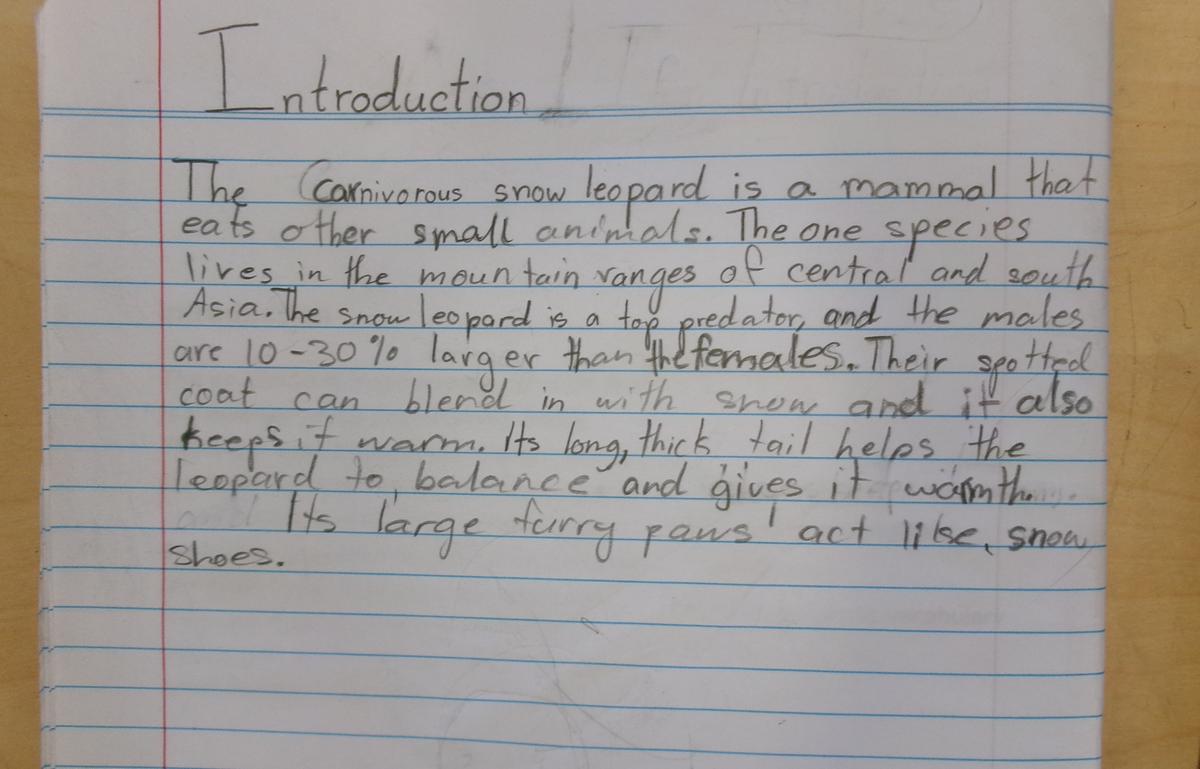 Introduction
The Carnivorous snow leopard is a mammal that
eats other small animals. The one species
lives in the mountain ranges of central and south
Asia. The snow leopard is a top predator, and the males
are 10-30% larger than the females. Their spotted
coat can blend in with snow and it also
keeps it warm. Its long, thick tail helps the
leopard to balance and gives it warmth.
Its large furry paws' act like, snow
shoes.